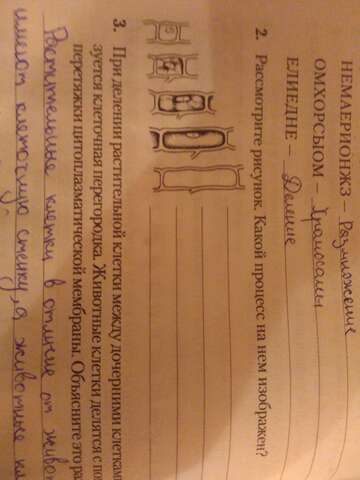 НЕМАЕРИОНЖЗ Размножение
ОМХОРСЫОМ – Хромосомы
ЕЛИЕДНЕ – Деление
2. Рассмотрите рисунок. Какой процесс на нем изображен?
3. При делении растительной клетки между дочерними клеткам
зуется клеточная перегородка. Животные клетки делятся с по
перетяжки цитоплазматической мембраны. Объясните это ра
Растительные клетки в отличие от живот
имеют клеточную стенку, а животные кл